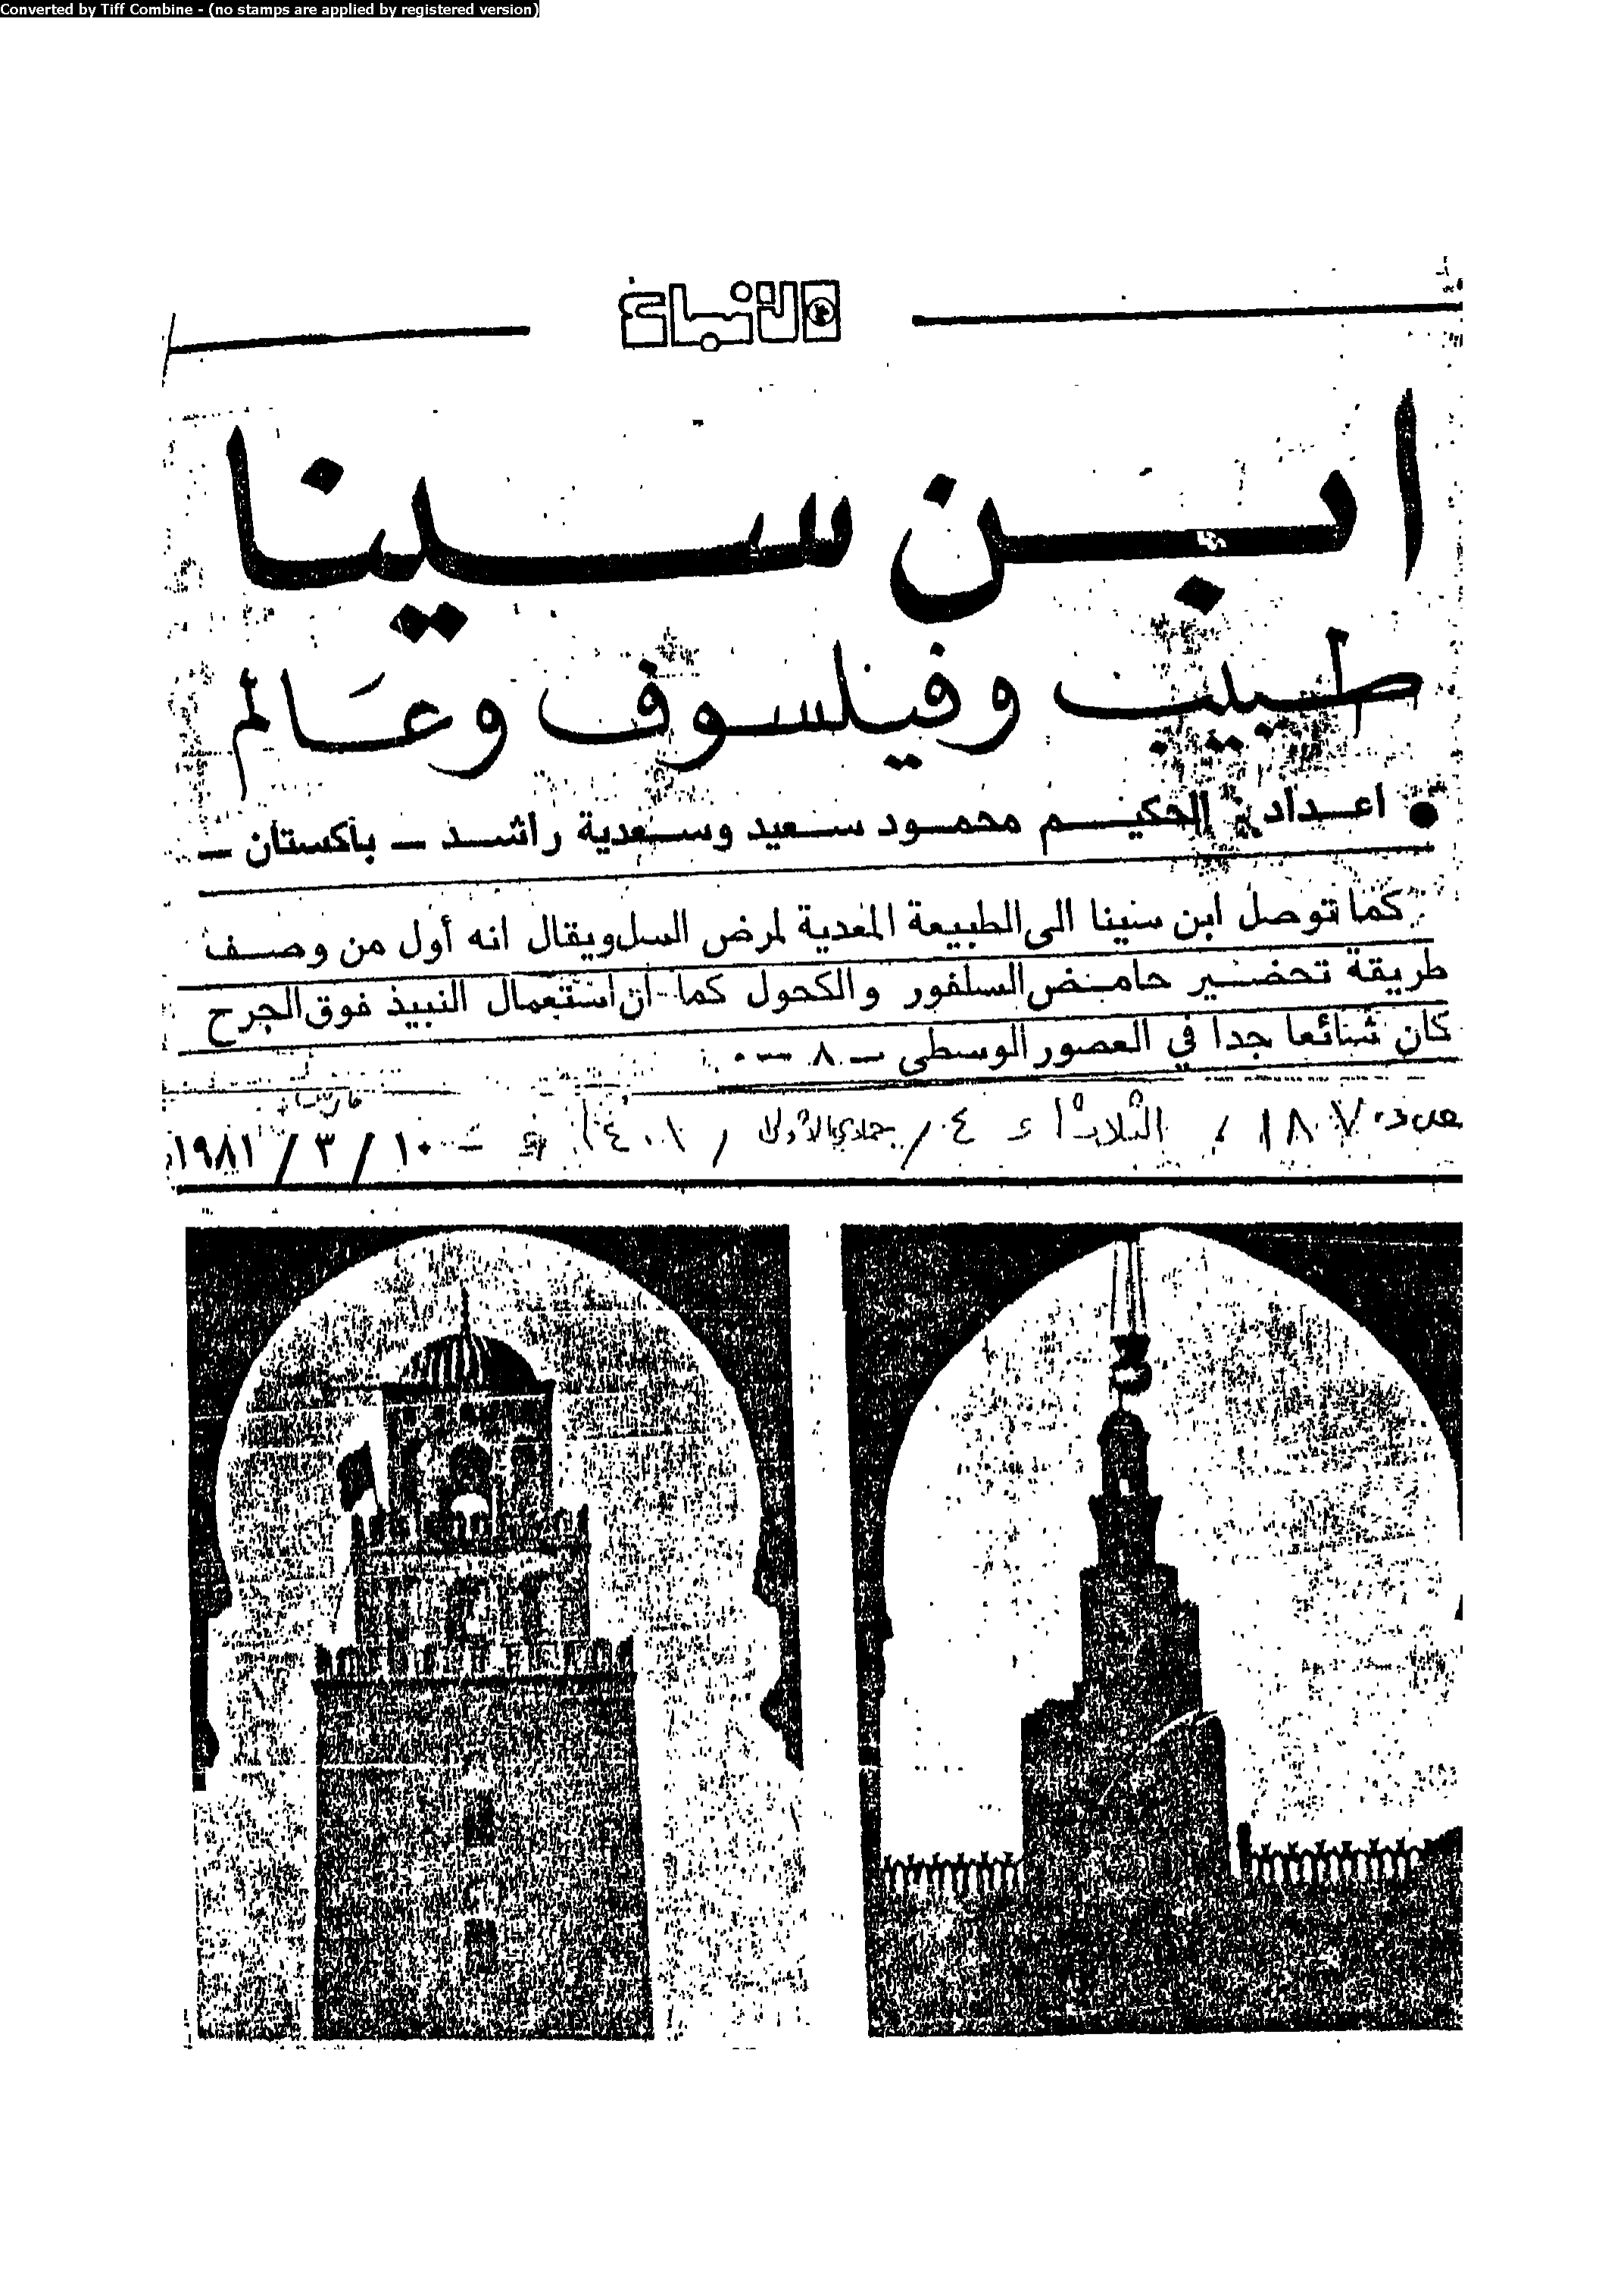 Converted by Tiff Combine - (no stamps are applied by registered version)
الانباء
ابن سينا
طبيب وفيلسوف وعَالم
• اعداد: الحكيم محمود سعيد وسعدية راشد – باكستان –
كما توصل ابن سينا الى الطبيعة المعدية لمرض السل ويقال انه أول من وصف
طريقة تحضير حامض السلفور والكحول كما ان استعمال النبيذ فوق الجرح
كان شائعا جدا في العصور الوسطى – ٨ –
عدد ١٨٧ / الثلاثاء ٤ / جمادى الاولى / ١٤٠١ – ١٠ / ٣ / ١٩٨١